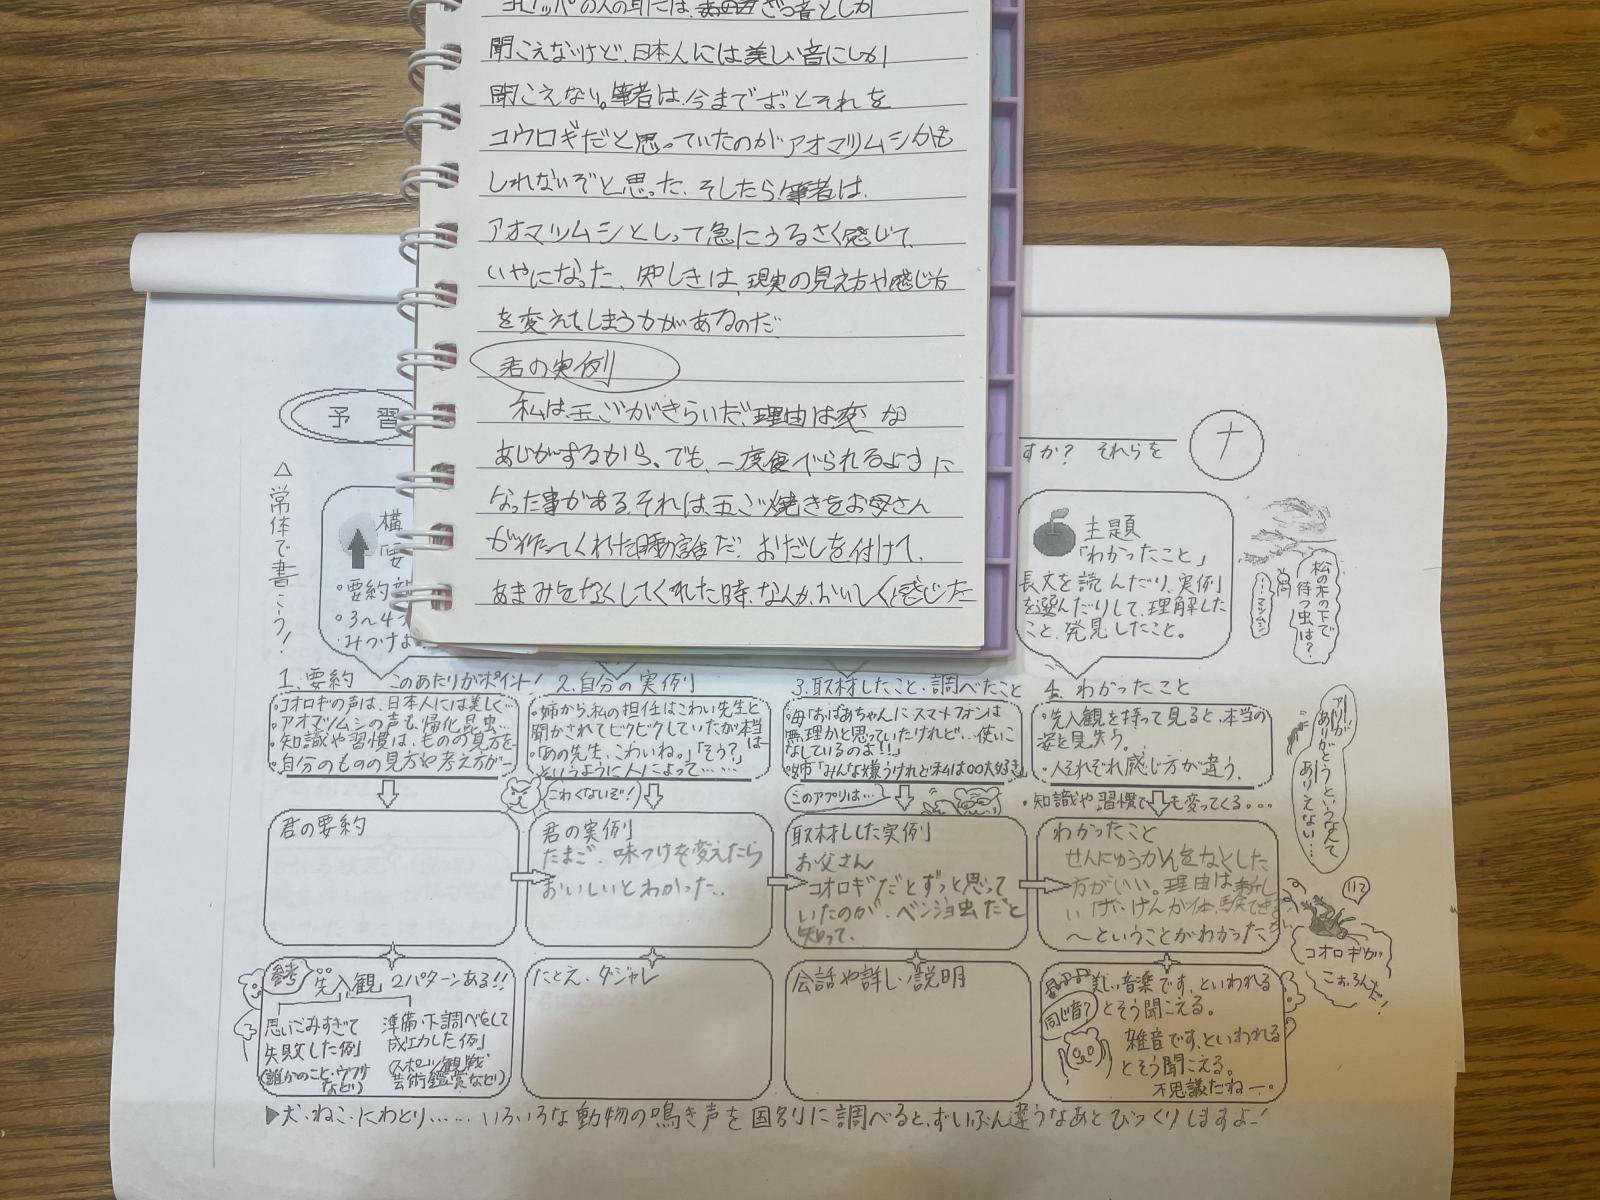 ヨーロッパの人の耳には、ざつ音としか
聞こえないけど、日本人には美しい音にしか
聞こえない。筆者は、今までずっとそれを
コウロギだと思っていたのがアオマツムシかも
しれないぞと思った、そしたら筆者は、
アオマツムシとしって急にうるさく感じて、
いやになった、知しきは、現実の見え方や感じ方
を変えてしまう力があるのだ
君の実例
私は、玉ごがきらいだ、理由は変な
あじがするから、でも、一度食べられるように
なった事がある、それは、玉ご焼きをお母さん
が作ってくれた時の話だ、おだしを付けて、
あまみをなくしてくれた時、なんか、おいしく感じた
予習
すか? それらを
ナ
△常体で書こう!
構
要
・要約
・3〜4
・みつけよ
主題
「わかったこと」
長文を読んだり、実例
を選んだりして、理解した
こと、発見したこと。
松の木の下で
待つ虫は?
……マツムシ
1.要約 このあたりがポイント!
・コオロギの声は、日本人には美しく…
・アオマツムシの声も、帰化昆虫…
・知識や習慣は、ものの見方を
・自分のものの見方や考え方が…
2.自分の実例
・姉から、私の担任はこわい先生と
聞かされてビクビクしていたが本当は…
・「あの先生、こわいね。」「そう?」
というように人によって……
3.取材したこと・調べたこと
・母「おばあちゃんにスマートフォンは
無理かと思っていたけれど…使いこ
なしているのよ!!」
・姉「みんな嫌うけれど私は○○大好き」
4.わかったこと
・先入観を持って見ると、本当の
姿を見失う。
・人それぞれ感じ方が違う。
・知識や習慣でも変ってくる…
こわくないぞ!
このアプリは…
アリが
ありがとうというなんて
ありえない…
君の要約
君の実例
たまご、味つけを変えたら
おいしいとわかった、
取材しした実例
お父さん
コオロギだとずっと思って
いたのが、ベンジョ虫だと
知って、
わかったこと
せんにゅうかんをなくした
方がいい。理由は新し
いぼうけんが体験でき
〜ということがわかった
コオロギが
こおろんだ!
参考
先入観 2パターンある!!
思いこみすぎて
失敗した例
(誰かのこと・ウワサ
など)
準備・下調べをして
成功した例
(スポーツ観戦
芸術鑑賞など)
たとえ・ダジャレ
会話や詳しい説明
美しい音楽です、といわれる
とそう聞こえる。
同じ音で
雑音です、といわれる
とそう聞こえる。
不思議だねー。
▶犬・ねこ・にわとり……いろいろな動物の鳴き声を国別に調べると、ずいぶん違うなあとびっくりしますよ!